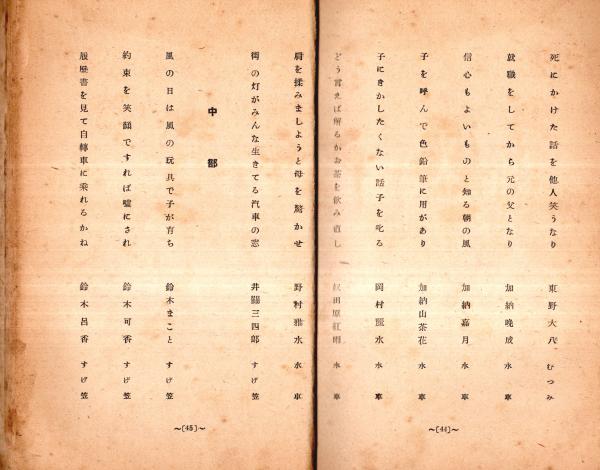 死にかけた話を他人笑うなり 東野大八 むつみ
就職をしてから元の父となり 加納晩成 水車
信心もよいものと知る朝の風 加納嘉月 水車
子を呼んで色鉛筆に用があり 加納山茶花 水車
子にきかしたくない話子を叱る 岡村 水 水車
どう言えば解るかお茶を飲み直し 田原紅 水車
～[44]～
肩を揉みましようと母を驚かせ 野村雅水 水車
街の灯がみんな生きてる汽車の窓 井 三四郎 すげ笠
中部
風の日は風の玩具で子が育ち 鈴木まこと すげ笠
約束を笑顔ですれば嘘にされ 鈴木可香 すげ笠
履歴書を見て自轉車に乘れるかね 鈴木呂香 すげ笠
～[45]～